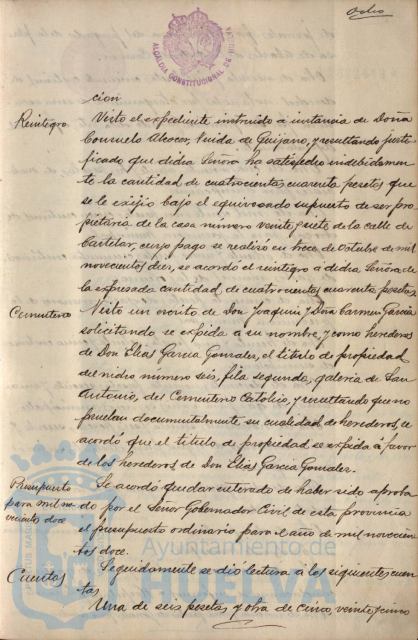 Ocho
ALCALDIA CONSTITUCIONAL DE HUELVA
cion
Reintegro
Visto el expediente instruido á instancia de Doña
Consuelo Alcocer, Viuda de Quijano, y resultando justi-
ficado que dicha Señora ha satisfecho indebidamen-
te la cantidad de cuatrocientas cuarenta pesetas que
se le exijió bajo el equivocado supuesto de ser pro-
pietaria de la casa número veinte y siete de la calle de
Castelar, cuyo pago se realizó en trece de Octubre de mil
novecientos diez, se acordó el reintegro á dicha Señora de
la expresada cantidad de cuatrocientas cuarenta pesetas.
Cementerio
Visto un escrito de Don Joaquin y Doña Carmen Garcia
solicitando se expida á su nombre, y como herederos
de Don Elias Garcia Gonzalez, el titulo de propiedad
del nicho número seis, fila segunda, galeria de San
Antonio, del Cementerio Catolico, y resultando que no
prueban documentalmente su cualidad de herederos, se
acordó que el titulo de propiedad se expida á favor
de los herederos de Don Elias Garcia Gonzalez.
Presupuesto
para mil no-
vecientos doce
Se acordó quedar enterado de haber sido aproba-
do por el Señor Gobernador Civil de esta provincia
el presupuesto ordinario para el año de mil novecien-
tos doce.
Cuentas
Seguidamente se dió lectura á las siguientes cuen-
tas
Una de seis pesetas y otra de cinco, veinte y cinco
Ayuntamiento de
HUELVA